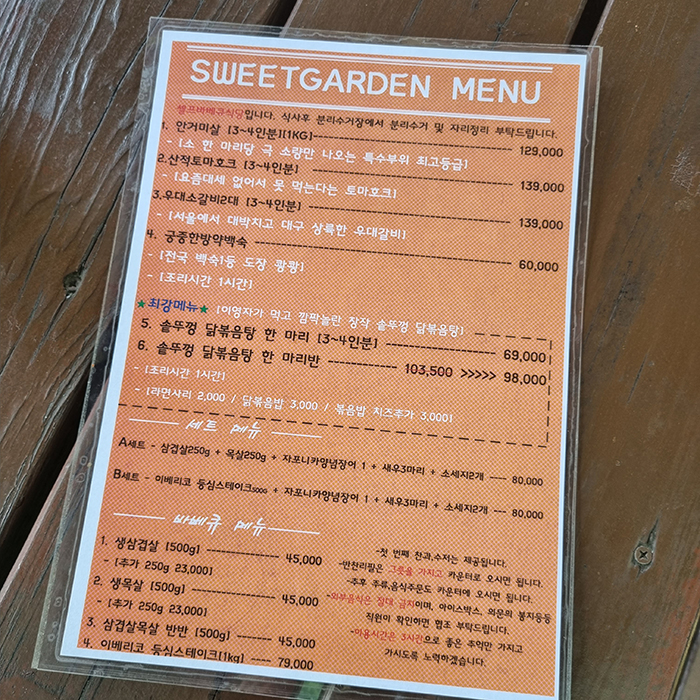 SWEETGARDEN MENU
셀프바베큐식당입니다. 식사후 분리수거장에서 분리수거 및 자리정리 부탁드립니다.
1. 안거미살 [3~4인분][1KG] 129,000
- [소 한 마리당 극 소량만 나오는 특수부위 최고등급]
2.산적토마호크 [3~4인분] 139,000
- [요즘대세 없어서 못 먹는다는 토마호크]
3.우대소갈비2대 [3~4인분] 139,000
- [서울에서 대박치고 대구 상륙한 우대갈비]
4. 궁중한방약백숙 60,000
- [전국 백숙1등 도장 쾅쾅]
- [조리시간 1시간]
★최강메뉴★ [이영자가 먹고 깜짝놀란 장작 솥뚜껑 닭볶음탕]
5. 솥뚜껑 닭볶음탕 한 마리 [3~4인분] 69,000
6. 솥뚜껑 닭볶음탕 한 마리반 103,500 >>>>> 98,000
- [조리시간 1시간]
- [라면사리 2,000 / 닭볶음밥 3,000 / 볶음밥 치즈추가 3,000]
세트 메뉴
A세트 - 삼겹살250g + 목살250g + 자포니카양념장어 1 + 새우3마리 + 소세지2개 80,000
B세트 - 이베리코 등심스테이크500G + 자포니카양념장어 1 + 새우3마리 + 소세지2개 80,000
바베큐 메뉴
1. 생삼겹살 [500g] 45,000
- [추가 250g 23,000]
2. 생목살 [500g] 45,000
- [추가 250g 23,000]
3. 삼겹살목살 반반 [500g] 45,000
4. 이베리코 등심스테이크[1kg] 79,000
-첫 번째 찬과,수저는 제공됩니다.
-반찬리필은 그릇을 가지고 카운터로 오시면 됩니다.
-추후 주류,음식주문도 카운터에 오시면 됩니다.
-외부음식은 절대 금지이며, 아이스박스, 의문의 봉지등등
직원이 확인하면 협조 부탁드립니다.
-이용시간은 3시간으로 좋은 추억만 가지고
가시도록 노력하겠습니다.